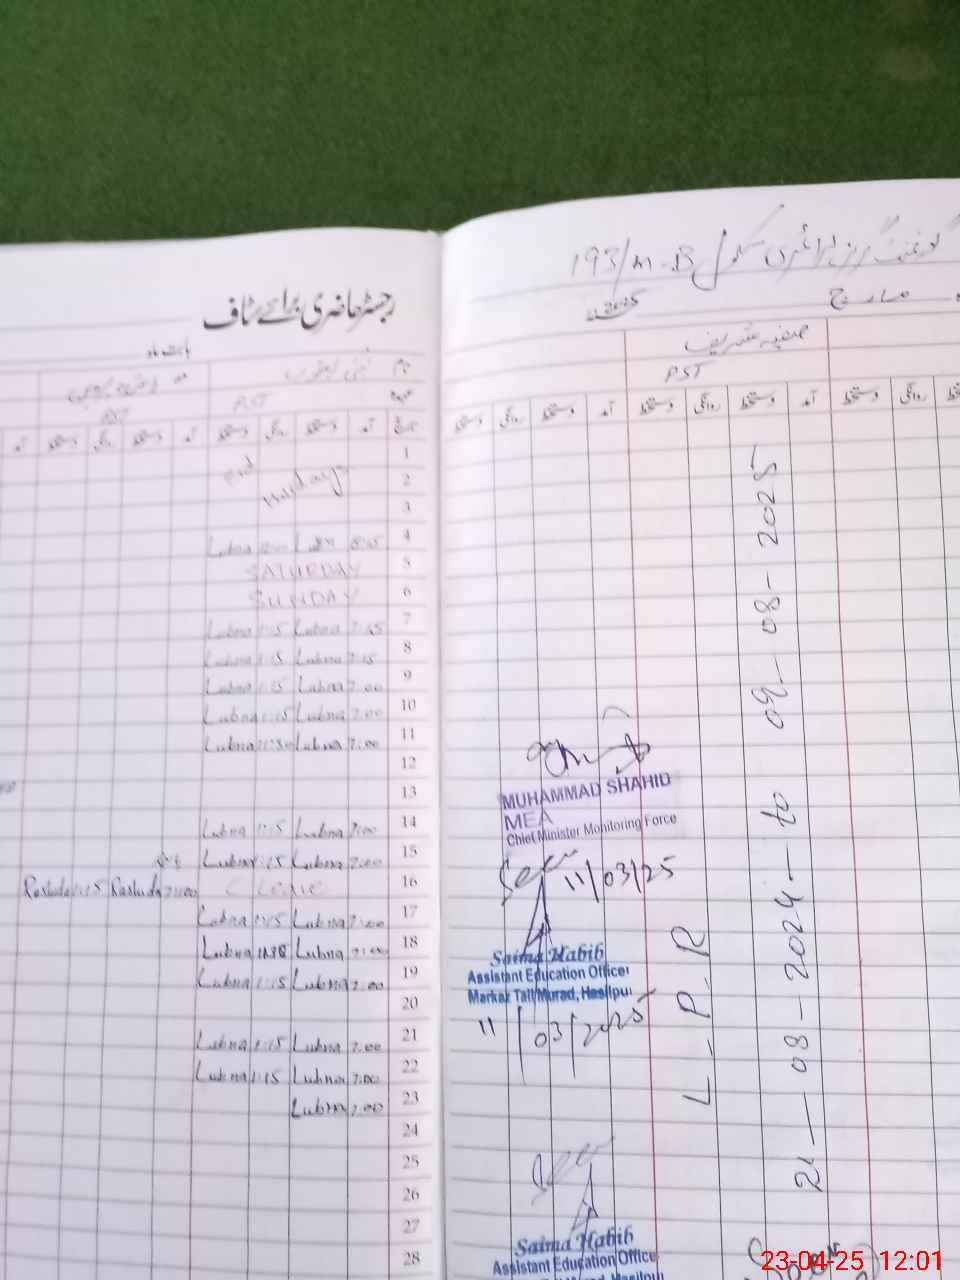 رجسٹر حاضری برائے سٹاف
بابت ماہ
نام
PST
PST
تاریخ آمد دستخط روانگی دستخط آمد دستخط روانگی دستخط آمد
1
2
Holidays
3
4 Lubna
5 SATURDAY
6 SUNDAY
7 Lubna 7:15 Lubna 1:15
8 Lubna 7:15 Lubna 1:15
9 Lubna 7:00 Lubna 1:15
10 Lubna 7:00 Lubna 1:15
11 Lubna 7:00 Lubna 11:30
12
13
14 Lubna 7:00 Lubna 1:15
15 Lubna 7:00 Lubna 1:15
16 C Leave Rashida 7:00 Rashida 1:15
17 Lubna 7:00 Lubna 1:15
18 Lubna 7:00 Lubna 11:30
19 Lubna 7:00 Lubna 1:15
20
21 Lubna 7:00 Lubna 1:15
22 Lubna 7:00 Lubna 1:15
23 Lubna 7:00
24
25
26
27
28
گورنمنٹ گرلز پرائمری سکول 193/M-B
مارچ 2025
صفیہ شریف
PST
دستخط روانگی دستخط آمد دستخط روانگی دستخط آمد دستخط روانگی دستخط
L-P-R
21-08-2024 to 09-08-2025
MUHAMMAD SHAHID
MEA
Chief Minister Monitoring Force
11/03/25
Saima Habib
Assistant Education Officer
Markaz Tail Murad, Hasilpur
11/03/2025
Saima Habib
Assistant Education Office
Hasilpu
23-04-25 12:01